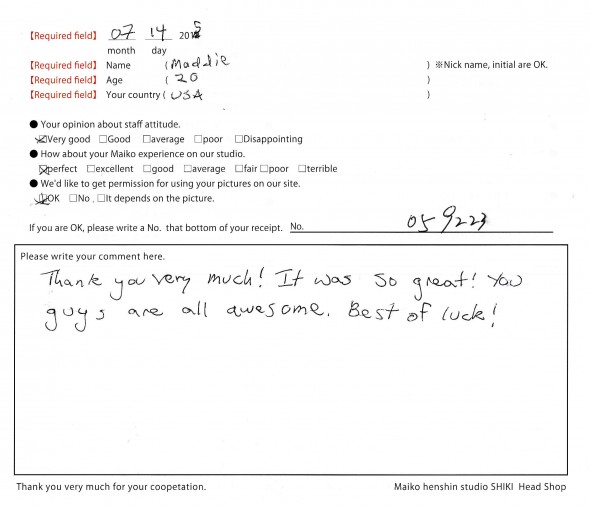 【Required field】 07 14 2015
month day
【Required field】 Name ( Maddie ) ※Nick name, initial are OK.
【Required field】 Age ( 20 )
【Required field】 Your country ( USA )
● Your opinion about staff attitude.
☑Very good □Good □average □poor □Disappointing
● How about your Maiko experience on our studio.
☒perfect □excellent □good □average □fair □poor □terrible
● We'd like to get permission for using your pictures on our site.
☑OK □No . □It depends on the picture.
If you are OK, please write a No. that bottom of your receipt. No. 059223
Please write your comment here.
Thank you very much! It was so great! You
guys are all awesome. Best of luck!
Thank you very much for your coopetation. Maiko henshin studio SHIKI Head Shop